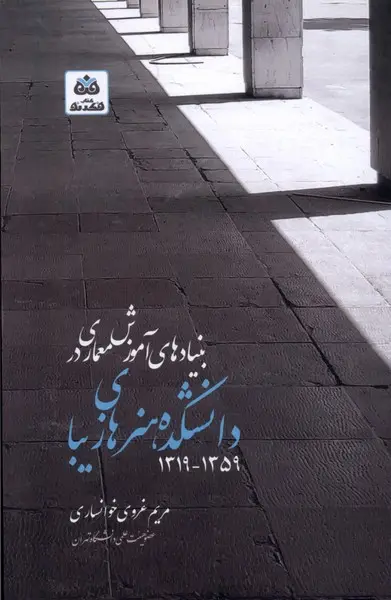 کتاب
فکر نو
بنیادهای آموزش معماری در
دانشکده هنرهای زیبا
۱۳۱۹-۱۳۵۹
مریم غروی خوانساری
عضو هیئت علمی دانشگاه تهران